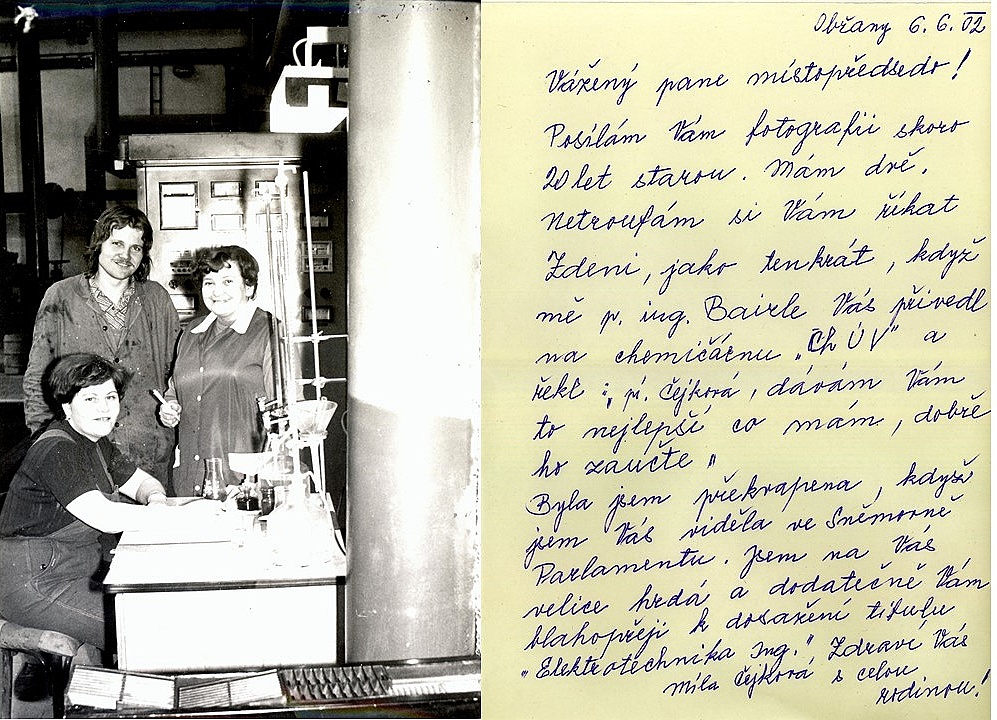 Obřany 6. 6. 02
Vážený pane místopředsedo!
Posílám Vám fotografii skoro
20 let starou. Mám dvě.
Netroufám si Vám říkat
Zdeni, jako tenkrát, když
mě p. ing. Bairle Vás přivedl
na chemičárnu „Ch ÚV" a
řekl: p. Čejková, dávám Vám
to nejlepší co mám, dobře
ho zaučte"
Byla jsem překvapena, když
jsem Vás viděla ve Sněmovně
Parlamentu. Jsem na Vás
velice hrdá a dodatečně Vám
blahopřeji k dosažení titulu
"Elektrotechnika Ing." Zdraví Vás
Míla Čejková s celou
rodinou!